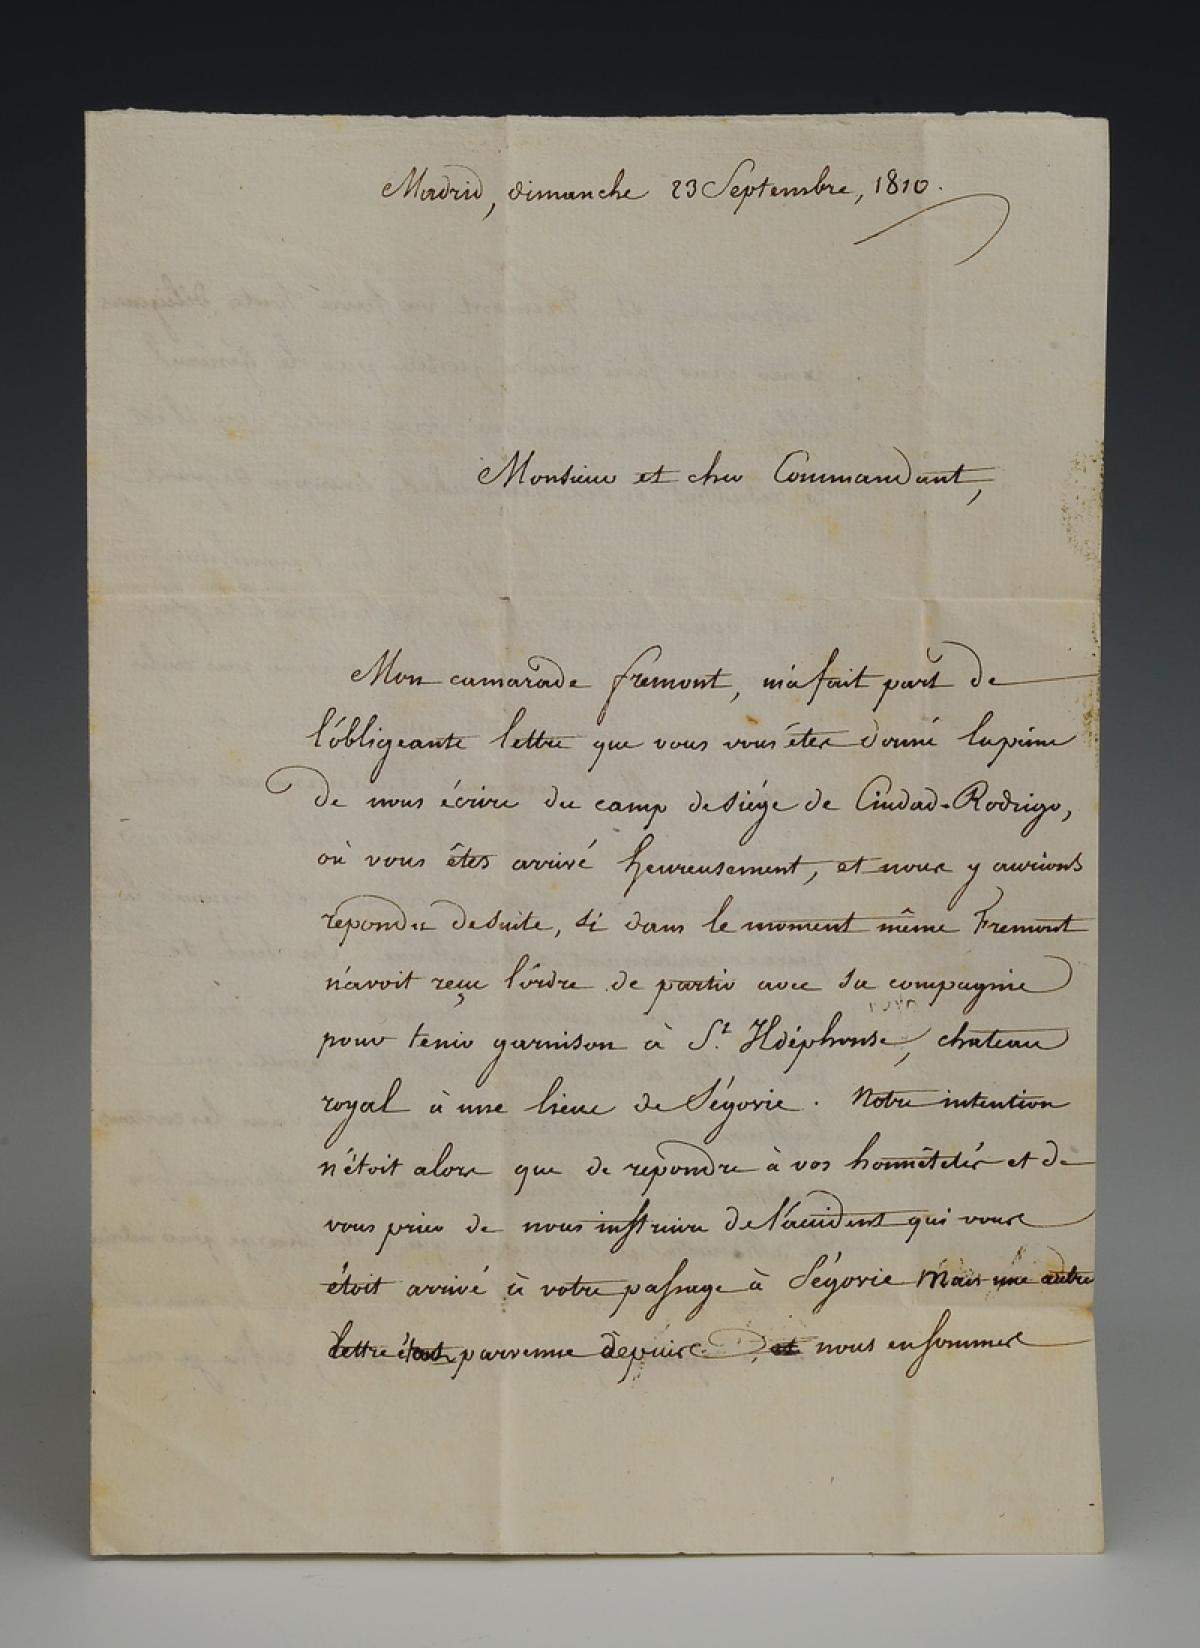 Madrid, dimanche 23 Septembre, 1810.
Monsieur et cher Commandant,
Mon camarade Fremont, m'a fait part de
l'obligeante lettre que vous vous êtes donné la peine
de nous écrire du camp de siége de Ciudad-Rodrigo,
où vous êtes arrivé heureusement, et nous y aurions
repondu desuite, si dans le moment même Fremont
n'avoit reçu l'ordre de partir avec sa compagnie
pour tenir garnison à St. Ildéphonse, chateau
royal à une lieue de Ségovie. Notre intention
n'étoit alors que de repondre à vos honnêtetés et de
vous prier de nous instruire de l'accident qui vous
étoit arrivé à votre passage à Ségovie Mais une autre
lettre étant parvenue depuis et nous en sommes